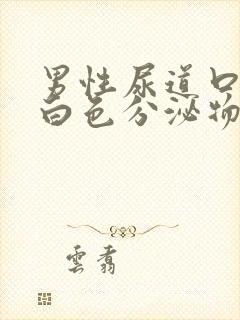 男性尿道口
白色分泌物
雲翥